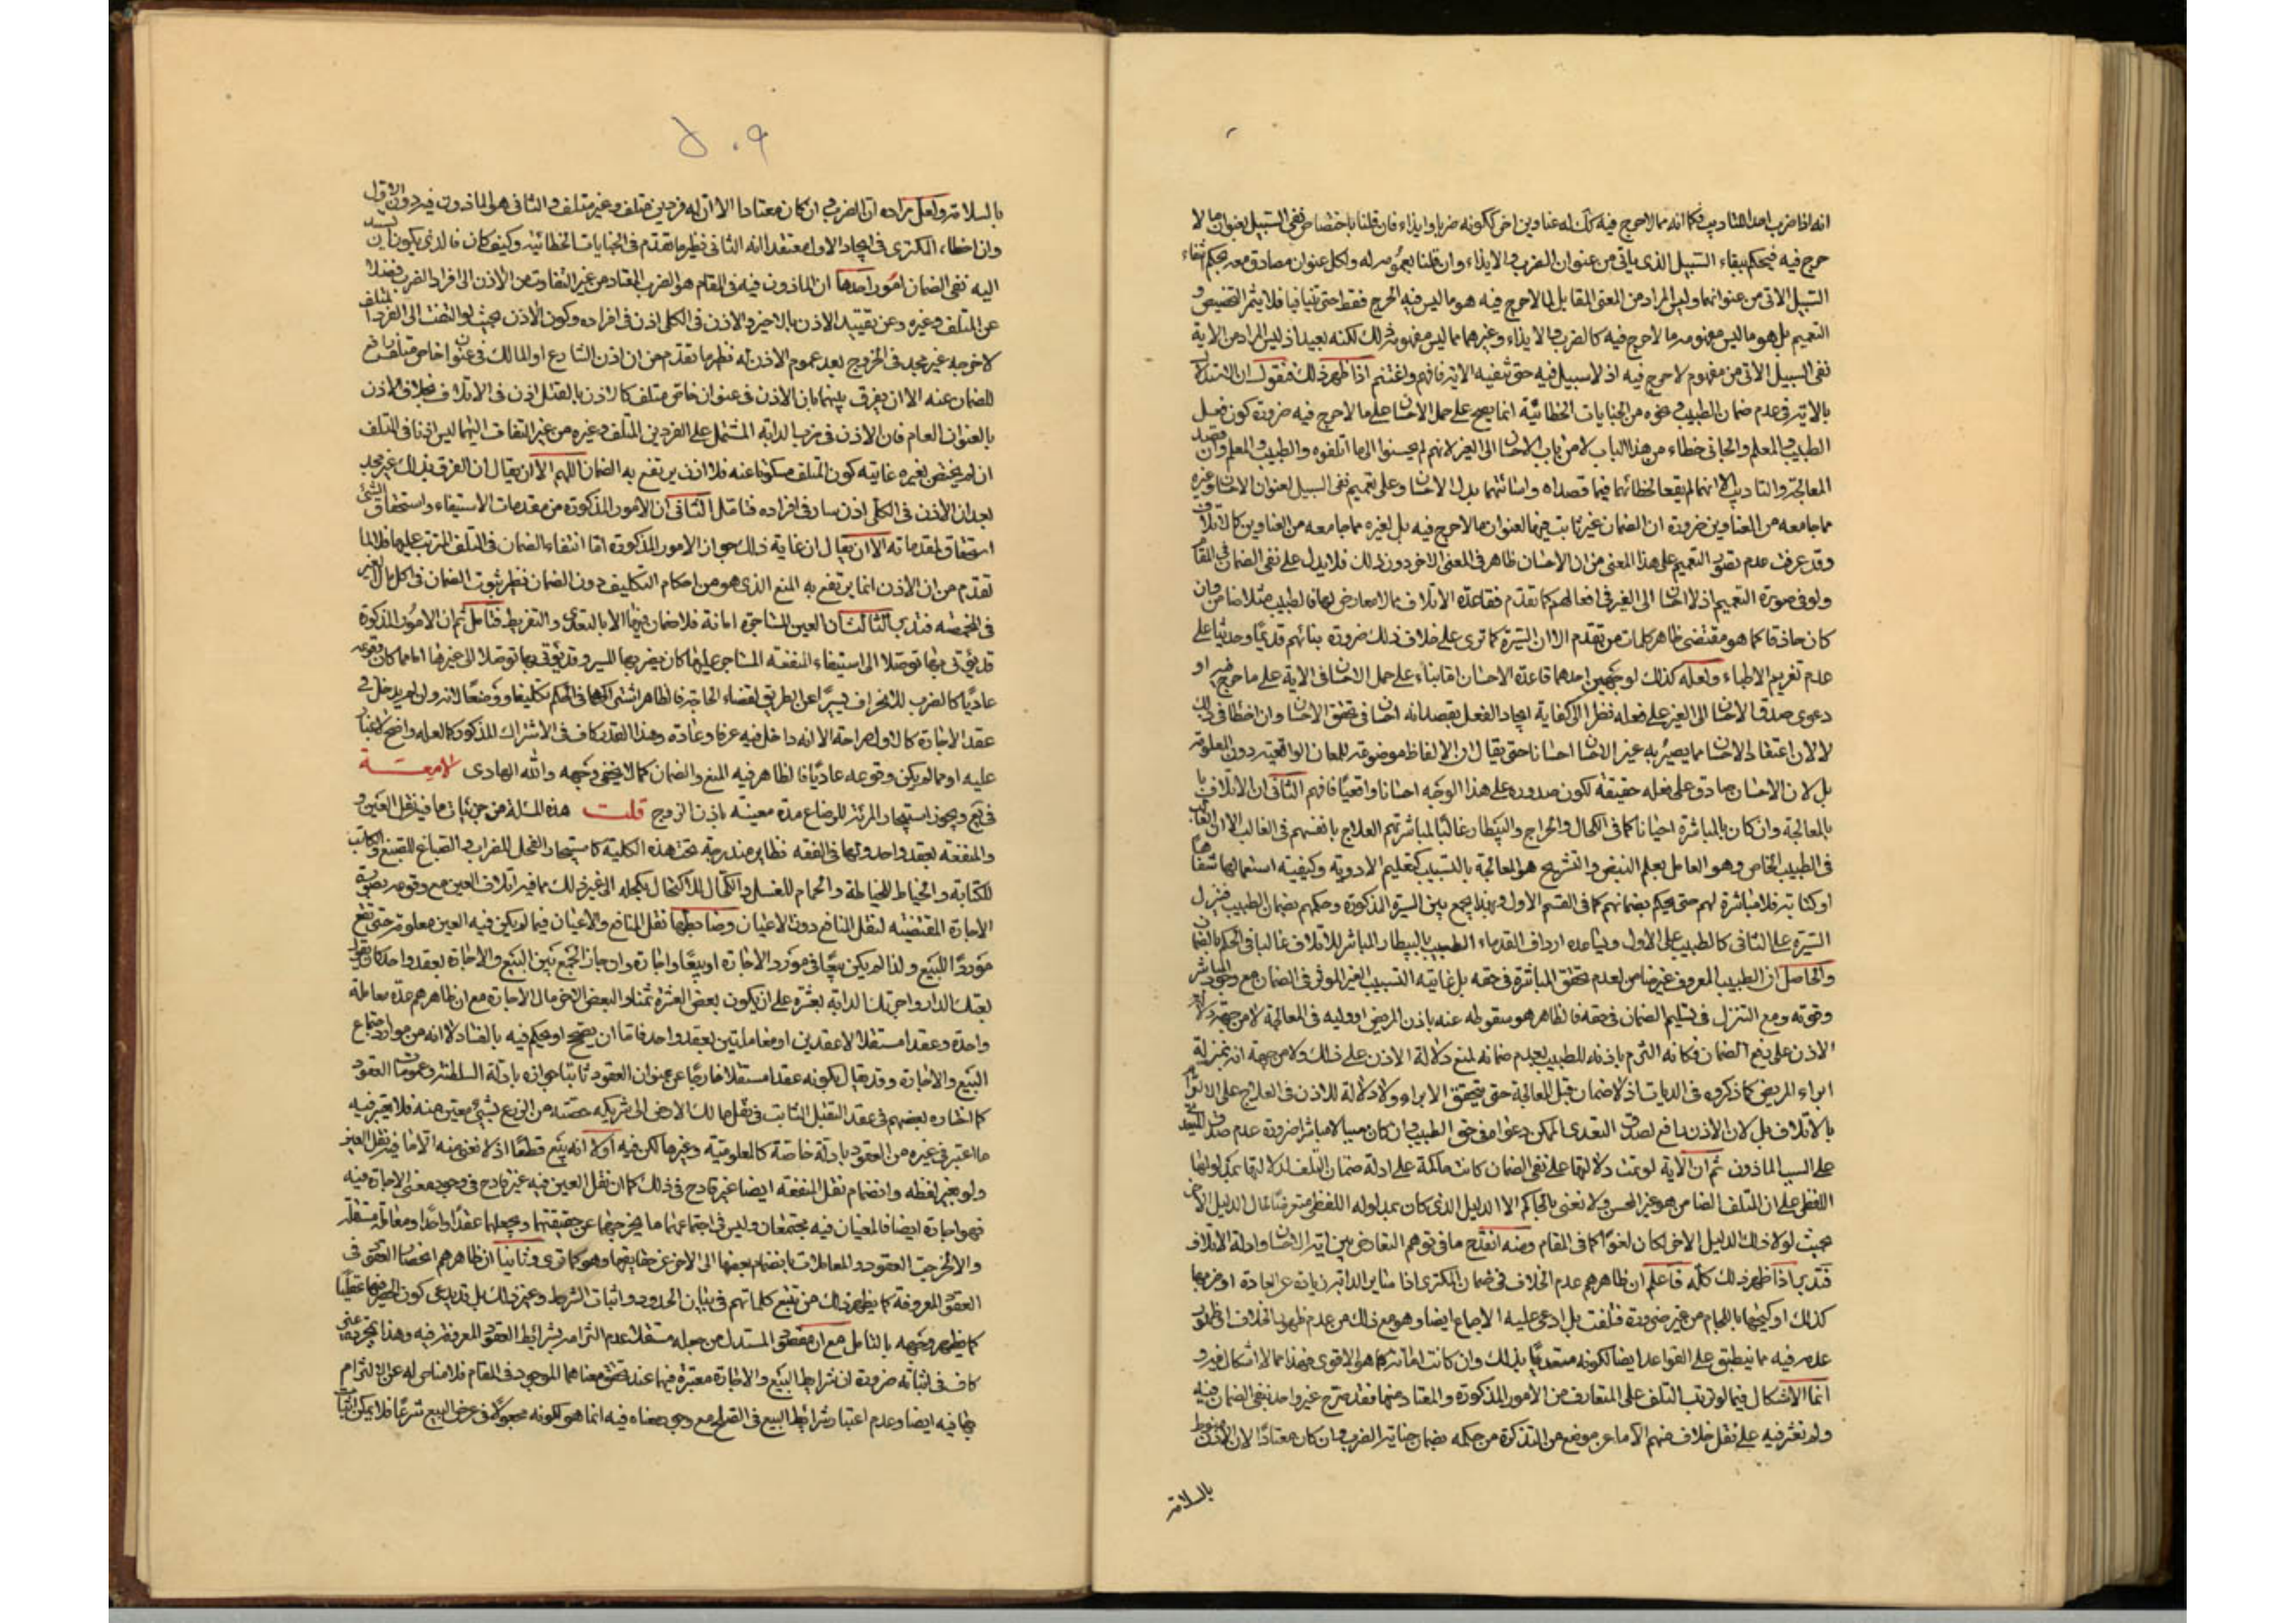 انه اذا ضرب احد للتاديب فكما انه مما لاحرج فيه كك له عناوين اخر ككونه ضربا وايذاء فان قلنا باختصاص نفى السبيل بعنوان ما لا
حرج فيه فيحكم ببقاء السبيل الذى ياتى من عنوان الضرب والايذاء وان قلنا بعمومه له ولكل عنوان مصادق معه يحكم بنفاء
السبيل الاتى من عنوانهما وليس المراد من المعنى المقابل لما لاحرج فيه هو ما ليس فيه الحرج فقط حتى تنافيا فلا يثمر التخصيص و
التعميم بل هو ما ليس مفهومه ما لاحرج فيه كالضرب والايذاء وغيرهما مما ليس مفهومه ذلك لكنه بعيد اذ ليس المراد من الاية
نفى السبيل الاتى من مفهوم لاحرج فيه اذ لا سبيل فيه حتى تنفيه الاية فافهم واغتنم اذا ظهر ذلك فنقول ان الاستدلال
بالاية فى عدم ضمان الطبيب ونحوه من الجنايات الخطائية انما يصح على حمل الاحسان على ما لاحرج فيه ضرورة كون فعل
الطبيب والمعلم والجانى خطاء من هذا الباب لا من باب الاحسان الى الغير لانهم لم يحسنوا الى ما اتلفوه والطبيب والمعلم وان قصد
المعالجة والتاديب الا انهما لم يقعا لخطائهما فيما قصداه واسائتهما بدل الاحسان وعلى تعميم نفى السبيل لعنوان الاحسان وغيره
مما جامعه من العناوين ضرورة ان الضمان غير ثابت فيهما لعنوان ما لاحرج فيه بل لغيره مما جامعه من العناوين كالاتلاف
وقد عرفت عدم تصور التعميم على هذا المعنى من ان الاحسان ظاهر فى المعنى الاخر دون ذلك فلا يدل على نفى الضمان فى المقام
ولو فى صورة التعميم اذ لا احسان الى الغير فى افعالهم كما تقدم فقاعدة الاتلاف مما لا معارض لها فالطبيب مثلا ضامن وان
كان حاذقا كما هو مقتضى ظاهر كلمات من تقدم الا ان السيرة كما ترى على خلاف ذلك ضرورة بنائهم قديما وحديثا على
عدم تغريم الاطباء ولعله كذلك لوجهين احدهما قاعدة الاحسان اما بناء على حمل الاحسان فى الاية على ما لاحرج فيه او
دعوى صدق الاحسان الى الغير على فعله نظرا الى كفاية ايجاد الفعل بقصد انه احسان فى تحقق الاحسان وان اخطا فى ذلك
لا لان اعتقاد الاحسان مما يصير به غير الاحسان احسانا حتى يقال ان الالفاظ موضوعة للمعان الواقعية دون المعلومة
بل لان الاحسان صادق على فعله حقيقة لكون صدوره على هذا الوجه احسانا واقعيا فافهم الثانى ان الاتلاف
بالمعالجة وان كان بالمباشرة احيانا كما فى الكحال والجراح والبيطار غالبا لمباشرتهم العلاج بانفسهم فى الغالب الا ان الغالب
فى الطبيب الخاص وهو العامل بعلم النبض والتشريح هو المعالجة بالتسبيب كتعليم الادوية وكيفية استعمالها شفاها
او كتابة فلا مباشرة لهم حتى يحكم بضمانهم كما فى القسم الاول وبهذا يجمع بين السيرة المذكورة وحكمهم بضمان الطبيب فينزل
السيرة على الثانى كالطبيب على الاول ويساعده ارداف القدماء الطبيب بالبيطار المباشر للاتلاف غالبا فى الحكم بالضمان
والحاصل ان الطبيب المعروف غير ضامن لعدم تحقق المباشرة فى حقه بل غايته التسبيب الغير الموثر فى الضمان مع وجود المباشر
وقوته ومع التنزل فى تسليم الضمان فى حقه فالظاهر هو سقوطه عنه باذن المريض او وليه فى المعالجة لا من جهة دلالة
الاذن على رفع الضمان فكانه التزم باذنه للطبيب بعدم ضمانه لمنع دلالة الاذن على ذلك ولا من جهة انه بمنزلة
ابراء المريض كما ذكروه فى الديات اذ لا ضمان قبل المعالجة حتى يتحقق الابراء ولا دلالة للاذن فى العلاج على الابراء
بالاتلاف بل لان الاذن مانع لصدق التعدى الممكن دعواه فى حق الطبيب وان كان سببا لا مباشرا ضرورة عدم صدق التعدى
على السبب الماذون ثم ان الاية لو تمت دلالتها على نفى الضمان كانت حاكمة على ادلة ضمان التلف لدلالتها بمدلولها
اللفظى على ان المتلف الضامن هو غير المحسن ولا نعنى بالحاكم الا الدليل الذى كان بمدلوله اللفظى متعرضا لحال الدليل الاخر
بحيث لولا ذلك الدليل الاخر لكان لغوا كما فى المقام ومنه انقدح ما فى توهم التعارض بين اية الاحسان وادلة الاتلاف
فتدبر اذا ظهر ذلك كله فاعلم ان ظاهرهم عدم الخلاف فى ضمان المكترى اذا ساير الدابة زيادة عن العادة او ضربها
كذلك او كبحها باللجام من غير ضرورة فتلفت بل ادعى عليه الاجماع ايضا وهو مع ذلك من عدم ظهور الخلاف او ظهور
عدمه فيه مما ينطبق على القواعد ايضا لكونه متعديا بذلك وان كانت امانة كما هو الاقوى فهذا مما لا اشكال فيه و
انما الاشكال فيما لو ترتب التلف على المتعارف من الامور المذكورة والمعتاد منها فقد صرح غير واحد بنفى الضمان فيه
ولم نعثر فيه على نقل خلاف منهم الا ما عن موضع من التذكرة من حكمه بضمان جناية الضرب وان كان معتادا لان الاذن منوط
بالسلامة
٥٠٩
بالسلامة ولعل مراده ان الضرب وان كان معتادا الا ان له فردين متلف وغير متلف والثانى هو الماذون فيه دون الاول
وان اخطاء المكترى فى ايجاد الاول معتقدا انه الثانى نظير ما تقدم فى الجنايات الخطائية وكيف كان فالذى يكون ان يسند
اليه نفى الضمان امور احدها ان الماذون فيه فى المقام هو الضرب المعتاد من غير التفات من الاذن الى افراد الضرب فضلا
عن المتلف وغيره وعن تقييد الاذن بالاخير والاذن فى الكلى اذن فى افراده وكون الاذن بحيث لو التفت الى الفرد المتلف
لاخرجه غير مجد فى الخروج بعد عموم الاذن له نظير ما تقدم من ان اذن الشارع او المالك فى عنوان خاص متلف رافع
للضمان عنه الا ان يفرق بينهما بان الاذن فى عنوان خاص متلف كالاذن بالقتل اذن فى الاتلاف بخلاف الاذن
بالعنوان العام فان الاذن فى ضرب الدابة المشتمل على الفردين المتلف وغيره من غير التفات اليهما ليس اذنا فى التلف
ان لم يختص بغيره غايته كون المتلف مسكوتا عنه فلا اذن يرتفع به الضمان اللهم الا ان يقال ان الفرق بذلك غير مجد
بعد ان الاذن فى الكلى اذن سار فى افراده فتامل الثانى ان الامور المذكورة من مقدمات الاستيفاء واستحقاق الشئ
استحقاق لمقدماته الا ان يقال ان غاية ذلك جواز الامور المذكورة اما انتفاء الضمان فى التلف المترتب عليها فلا لما
تقدم من ان الاذن انما يرتفع به المنع الذى هو من احكام التكليف دون الضمان نظير ثبوت الضمان فى اكل مال الغير
فى المخمصة فتدبر الثالث ان العين المستاجرة امانة فلا ضمان فيها الا بالتعدى والتفريط فتامل ثم ان الامور المذكورة
قد يؤتى بها توصلا الى استيفاء المنفعة المستاجر عليها كان يضربها للسير وقد يؤتى بها توصلا الى غيرها اما مما كان وقوعه
عاديا كالضرب للانحراف يسيرا عن الطريق لقضاء الحاجة فالظاهر اشتراكهما فى الحكم تكليفا ووضعا لانه وان لم يدخل فى
عقد الاجارة كالاول صراحة الا انه داخل فيه عرفا وعادة وهذا القدر كاف فى الاشتراك المذكور كما لعله واضح لا غبار
عليه او مما لم يكن وقوعه عاديا فالظاهر فيه المنع والضمان كما لا يخفى وجهه والله الهادى
فى يع ويجوز استيجار المرئة للرضاع مدة معينة باذن الزوج قلت هذه المسئلة من جزئيات ما فيه نقل العين و
والمنفعة بعقد واحد ولها فى الفقه نظاير مندرجة تحت هذه الكلية كاستيجار الفحل للضراب والصباغ للصبغ والكاتب
للكتابة والخياط للخياطة والحمام للغسل والكحال للاكتحال بكحله الى غير ذلك مما فيه اتلاف العين مع وقوعه بصورة
الاجارة المقتضية لنقل المنافع دون الاعيان وضابطها نقل المنافع والاعيان فيما لم يكن فيه العين معلومة حتى تقع
موردا للبيع ولذا لم يكن بيعا فى مورد الاجارة او بيعا واجارة وان جاز الجمع بين البيع والاجارة بعقد واحد كان يقول
بعتك الدار واجرتك الدابة بعشرة على ان يكون بعض العشرة ثمنا والبعض الاخر مال الاجارة مع ان ظاهرهم عده معاملة
واحدة وعقدا مستقلا لا عقدين او معاملتين بعقد واحد فاما ان يصحح او يحكم فيه بالفساد لا انه من موارد اجتماع
البيع والاجارة وقد يقال بكونه عقدا مستقلا خارجا عن عنوان العقود ثابتا جوازه بادلة السلطنة وعمومات العقود
كما اختاره بعضهم فى عقد التقبل الثابت فى نقل مالك الارض الى شريكه حصته من الزرع بشئ معين منه فلا يعتبر فيه
ما اعتبر فى غيره من العقود بادلة خاصة كالمعلومية وغيرها لكن فيه اولا انه بيع قطعا اذ لا نعنى منه الا ما فيه نقل العين
ولو بغير لفظه وانضمام نقل المنفعة ايضا غير قادح فى ذلك كما ان نقل العين فيه غير قادح فى وجود معنى الاجارة فيه
فهو اجارة ايضا فالمعنيان فيه مجتمعان وليس فى اجتماعهما ما يخرجهما عن حقيقتهما ويجعلهما عقدا واحدا ومعاملة مستقلة
والا لخرجت العقود والمعاملات بانضمام بعضها الى الاخر عن حقايقها وهو كما ترى وثانيا ان ظاهرهم انحصار العقود فى
العقود المعروفة كما يظهر ذلك من تتبع كلماتهم فى بيان الحدود واثبات الشرط وغير ذلك بل قد يدعى كون الحصر فيها عقليا
كما يظهر وجهه بالتامل مع ان مقصود المستدل من جعله مستقلا عدم التزامه بشرائط العقود المعروفة فيه وهذا بمجرده غير
كاف فى اثباته ضرورة ان شرائط البيع والاجارة معتبرة فيهما عند تحقق معناهما الموجود فى المقام فلا مناص له عن الالتزام
بها فيه ايضا وعدم اعتبار شرائط البيع فى الصلح مع وجود معناه فيه انما هو لكونه مجعولا فى عرض البيع شرعا فلا يمكن اثبات